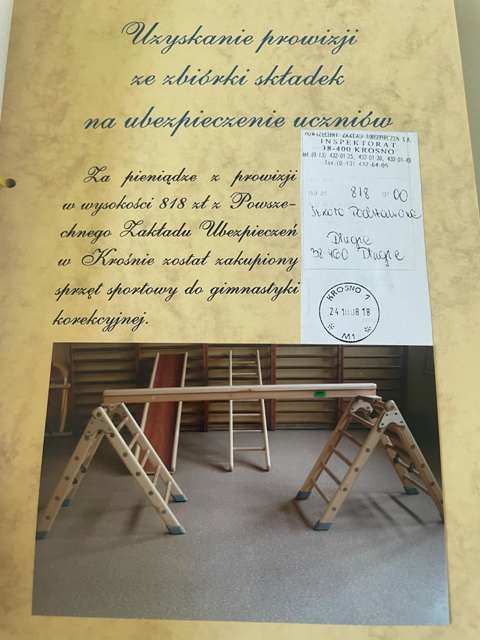 Uzyskanie prowizji
ze zbiórki składek
na ubezpieczenie uczniów
Za pieniądze z prowizji
w wysokości 818 zł z Powsze-
chnego Zakładu Ubezpieczeń
w Krośnie został zakupiony
sprzęt sportowy do gimnastyki
korekcyjnej.
POWSZECHNY ZAKŁAD UBEZPIECZEŃ S.A.
INSPEKTORAT
38-400 KROSNO
818 00
Szkoła Podstawowa
Długie
38-460 Długie
KROSNO 1
24 10 08 18
M1